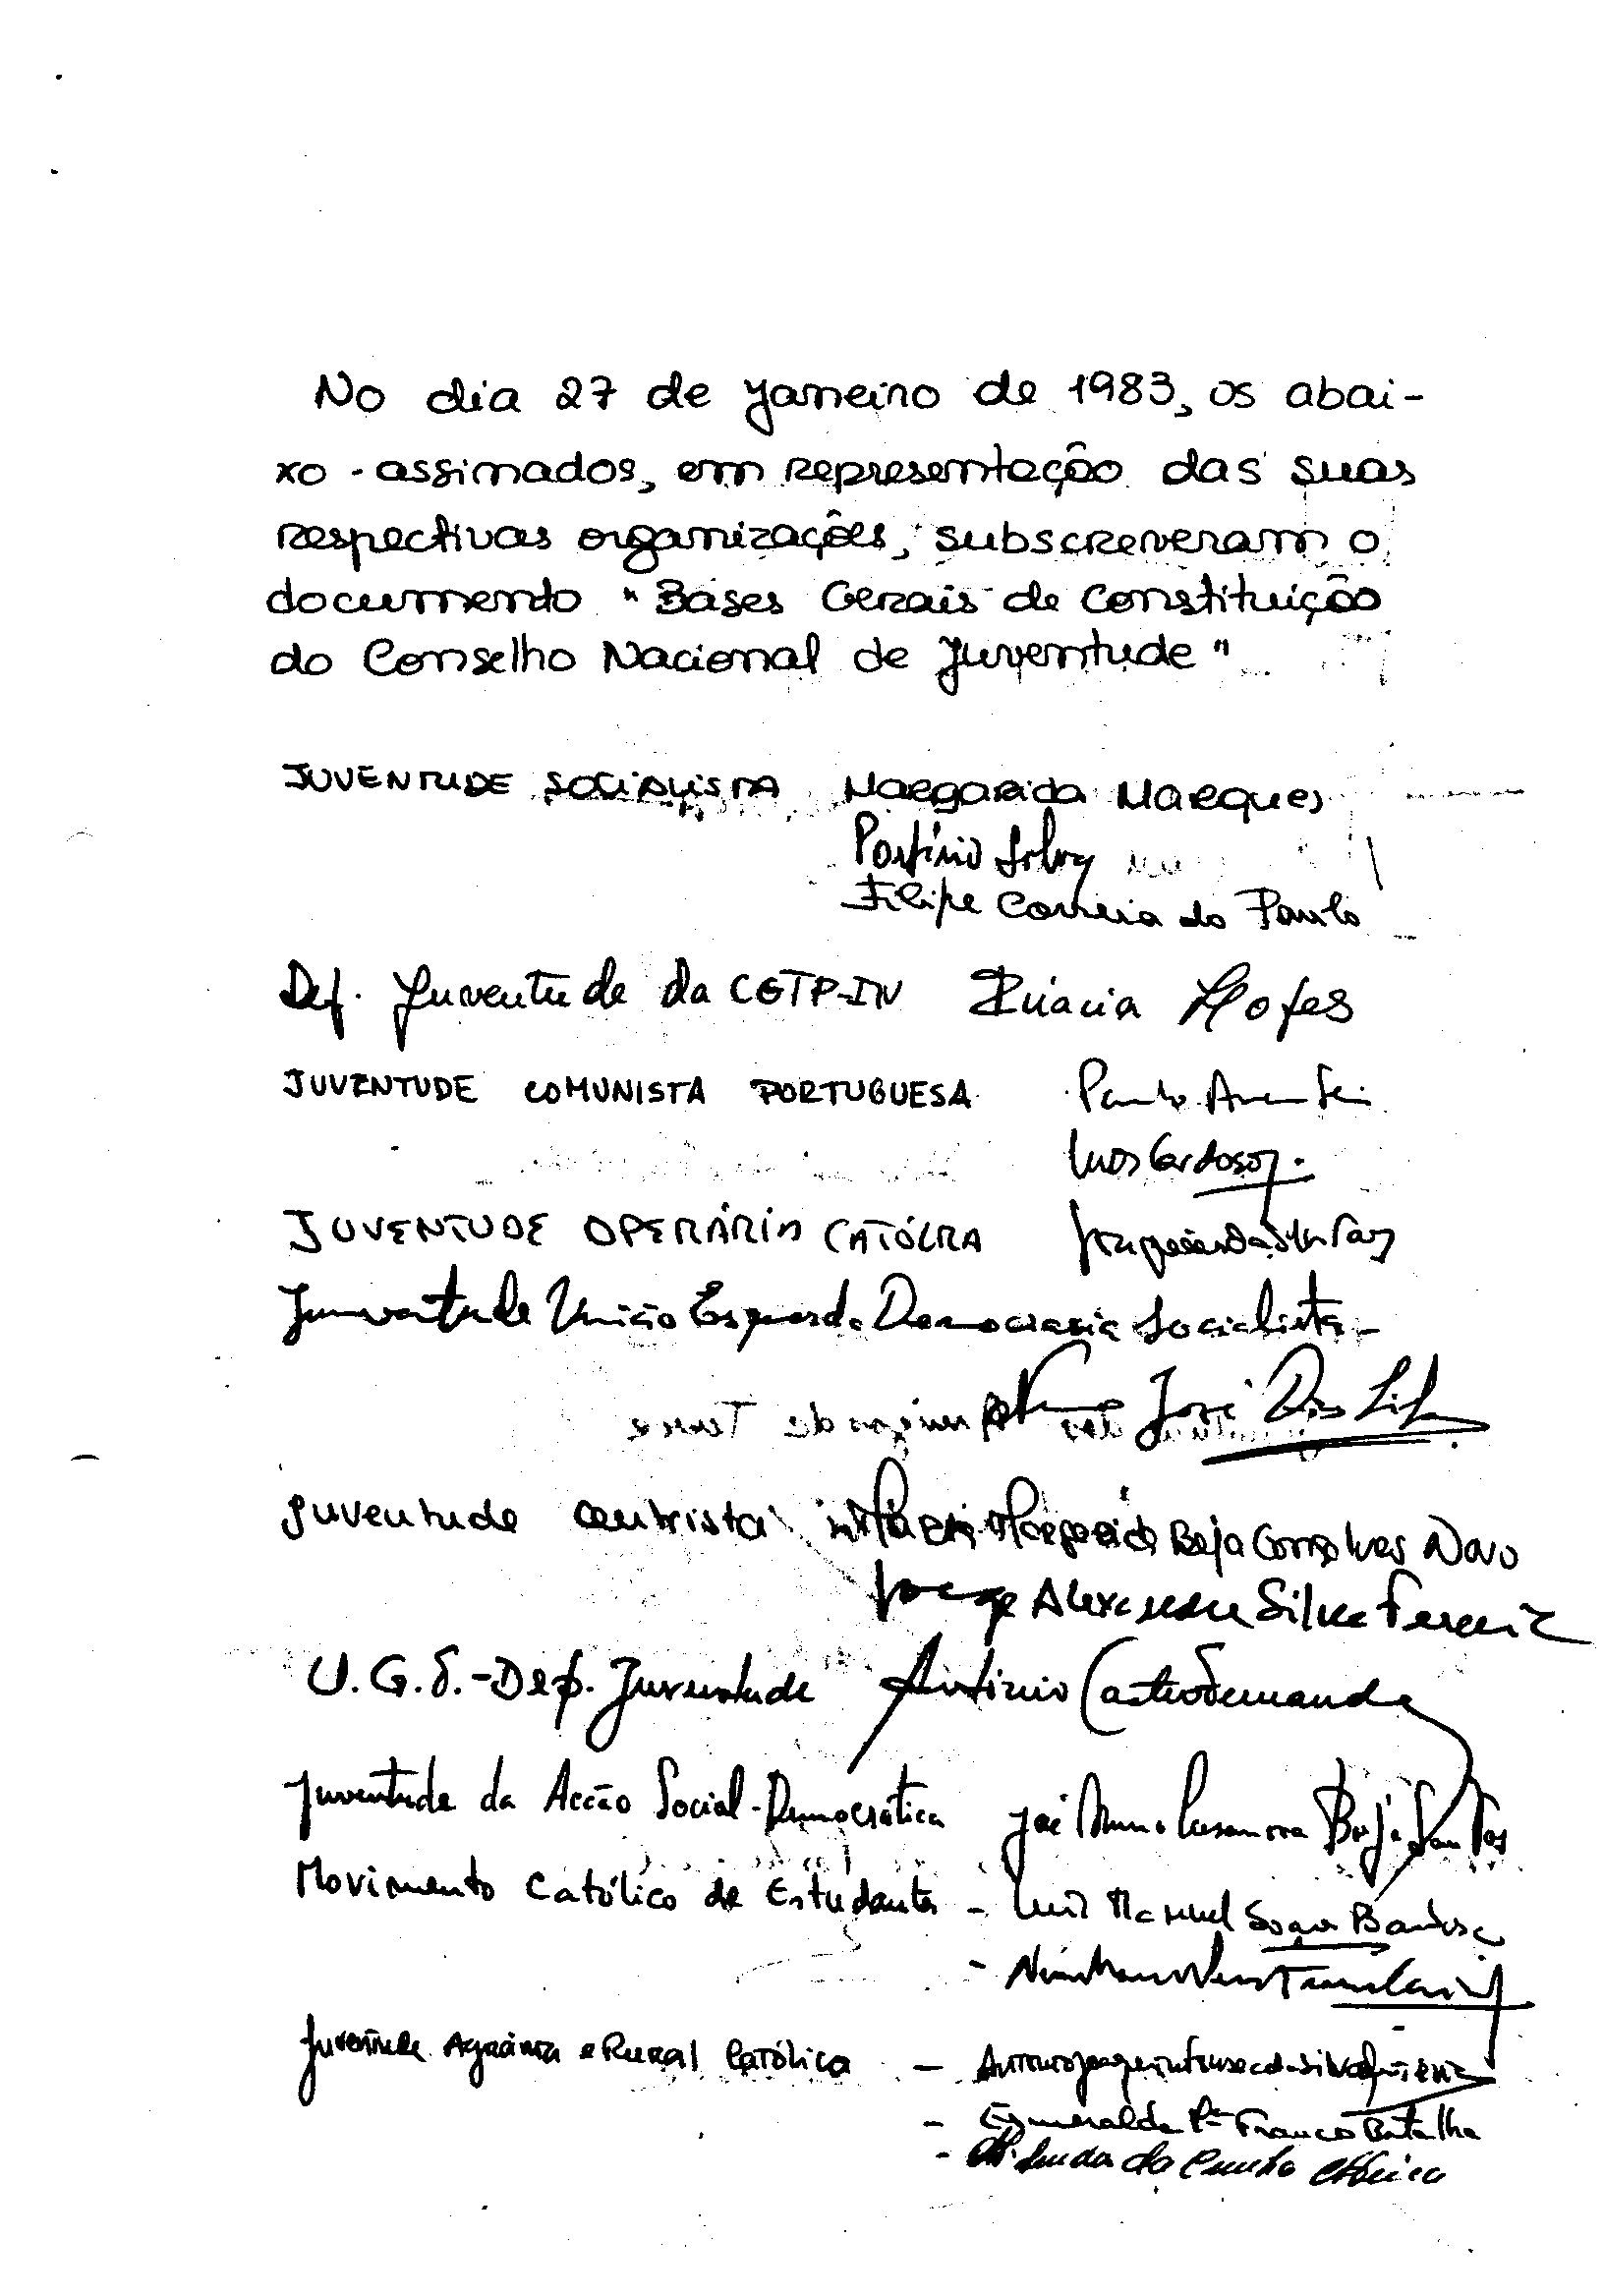 No dia 27 de Janeiro de 1983, os abai-
xo-assinados, em representação das suas
respectivas organizações, subscreveram o
documento "Bases Gerais de Constituição
do Conselho Nacional de Juventude"
JUVENTUDE SOCIALISTA Margarida Marques
Porfírio Silva
Filipe Correia do Paulo
Dep. Juventude da CGTP-IN
JUVENTUDE COMUNISTA PORTUGUESA Paulo
Luís Cardoso
JUVENTUDE OPERÁRIA CATÓLICA
Juventude União Esquerda Democracia Socialista -
José Dias
Juventude Centrista Maria Margarida Beja Gonçalves Novo
Jorge Alexandre Silva Ferreira
U.G.T.-Dep. Juventude António Castro Fernandes
Juventude da Acção Social-Democrática José Nuno Casanova Borja Santos
Movimento Católico de Estudantes - Luís Manuel Barbosa
Juventude Agrária e Rural Católica -
- Esmeralda Franco Batalha
- da Cunha